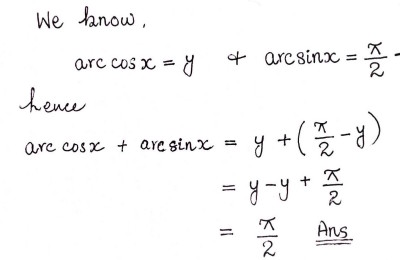 We know,
arc cos x = y & arc sin x = π/2 -
hence
arc cos x + arc sin x = y + (π/2 - y)
= y - y + π/2
= π/2 Ans